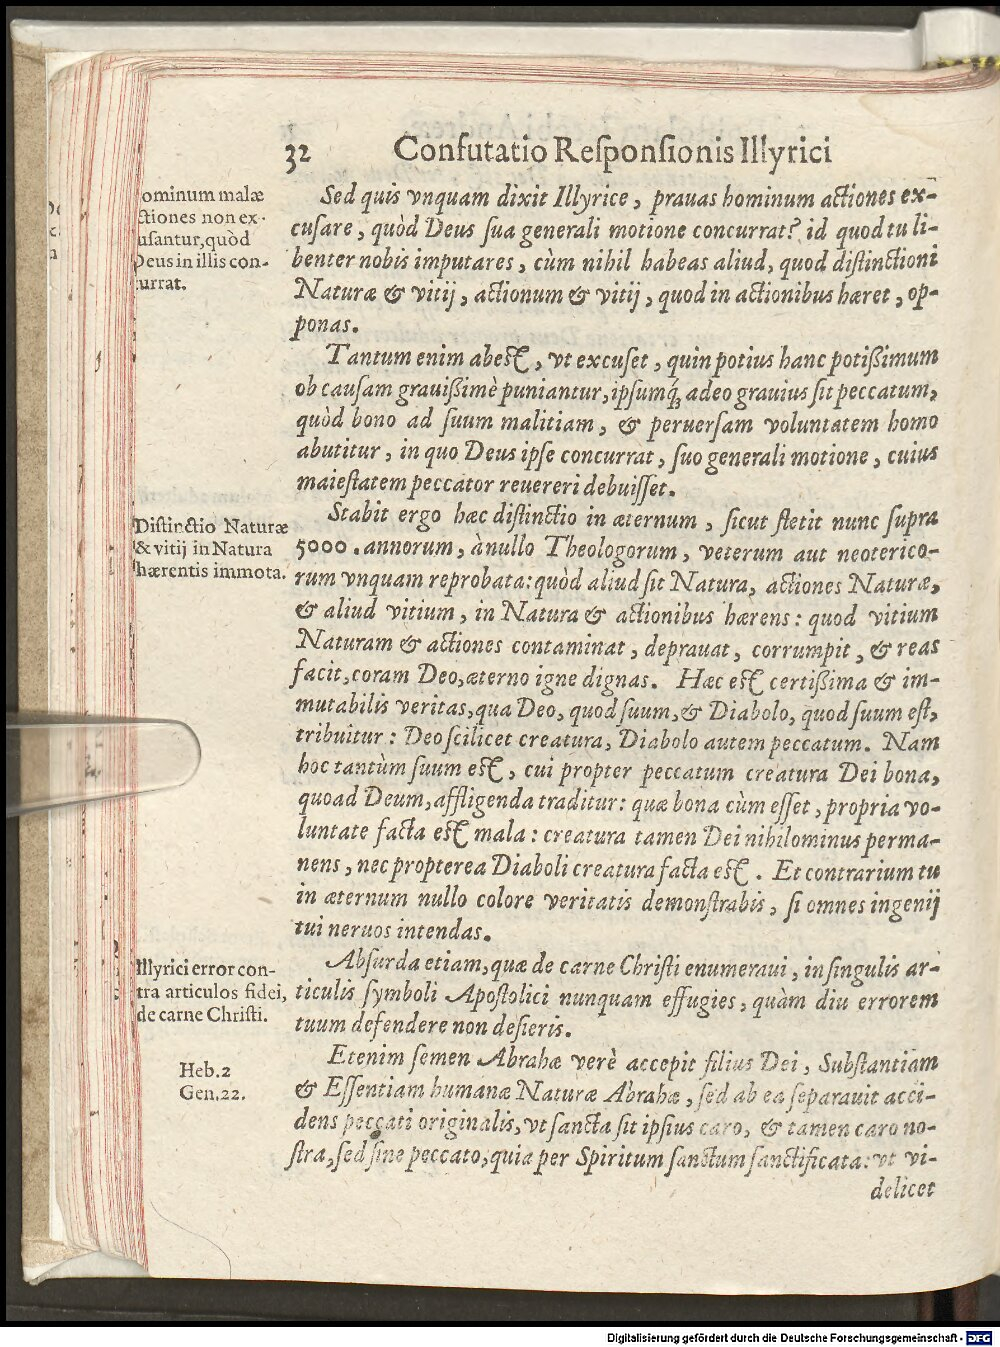 32 Confutatio Reſponſionis Illyrici
ominum malæ
ctiones non ex-
uſantur, quòd
Deus in illis con-
urrat.
Sed quis vnquam dixit Illyrice, prauas hominum actiones ex-
cuſare, quòd Deus ſua generali motione concurrat? id quod tu li-
benter nobis imputares, cùm nihil habeas aliud, quod diſtinctioni
Naturæ & vitij, actionum & vitij, quod in actionibus hæret, op-
ponas.
Tantum enim abeſt, vt excuſet, quin potius hanc potißimum
ob cauſam grauißimè puniantur, ipſumq́; adeo grauius ſit peccatum,
quòd bono ad ſuum malitiam, & peruerſam voluntatem homo
abutitur, in quo Deus ipſe concurrat, ſuo generali motione, cuius
maieſtatem peccator reuereri debuiſſet.
Diſtinctio Naturæ
& vitij in Natura
hærentis immota.
Stabit ergo hæc diſtinctio in æternum, ſicut ſtetit nunc ſupra
5000. annorum, à nullo Theologorum, veterum aut neoterico-
rum vnquam reprobata: quòd aliud ſit Natura, actiones Naturæ,
& aliud vitium, in Natura & actionibus hærens: quod vitium
Naturam & actiones contaminat, deprauat, corrumpit, & reas
facit, coram Deo, æterno igne dignas. Hæc eſt certißima & im-
mutabilis veritas, qua Deo, quod ſuum, & Diabolo, quod ſuum eſt,
tribuitur: Deo ſcilicet creatura, Diabolo autem peccatum. Nam
hoc tantùm ſuum eſt, cui propter peccatum creatura Dei bona,
quoad Deum, affligenda traditur: quæ bona cùm eſſet, propria vo-
luntate facta eſt mala: creatura tamen Dei nihilominus perma-
nens, nec propterea Diaboli creatura facta eſt. Et contrarium tu
in æternum nullo colore veritatis demonſtrabis, ſi omnes ingenij
tui neruos intendas.
Illyrici error con-
tra articulos fidei,
de carne Chriſti.
Abſurda etiam, quæ de carne Chriſti enumeraui, in ſingulis ar-
ticulis ſymboli Apoſtolici nunquam effugies, quàm diu errorem
tuum defendere non deſieris.
Heb. 2
Gen. 22.
Etenim ſemen Abrahæ verè accepit filius Dei, Subſtantiam
& Eſſentiam humanæ Naturæ Abrahæ, ſed ab ea ſeparauit acci-
dens peccati originalis, vt ſancta ſit ipſius caro, & tamen caro no-
ſtra, ſed ſine peccato, quia per Spiritum ſanctum ſanctificata: vt vi-
delicet
Digitalisierung gefördert durch die Deutsche Forschungsgemeinschaft - DFG